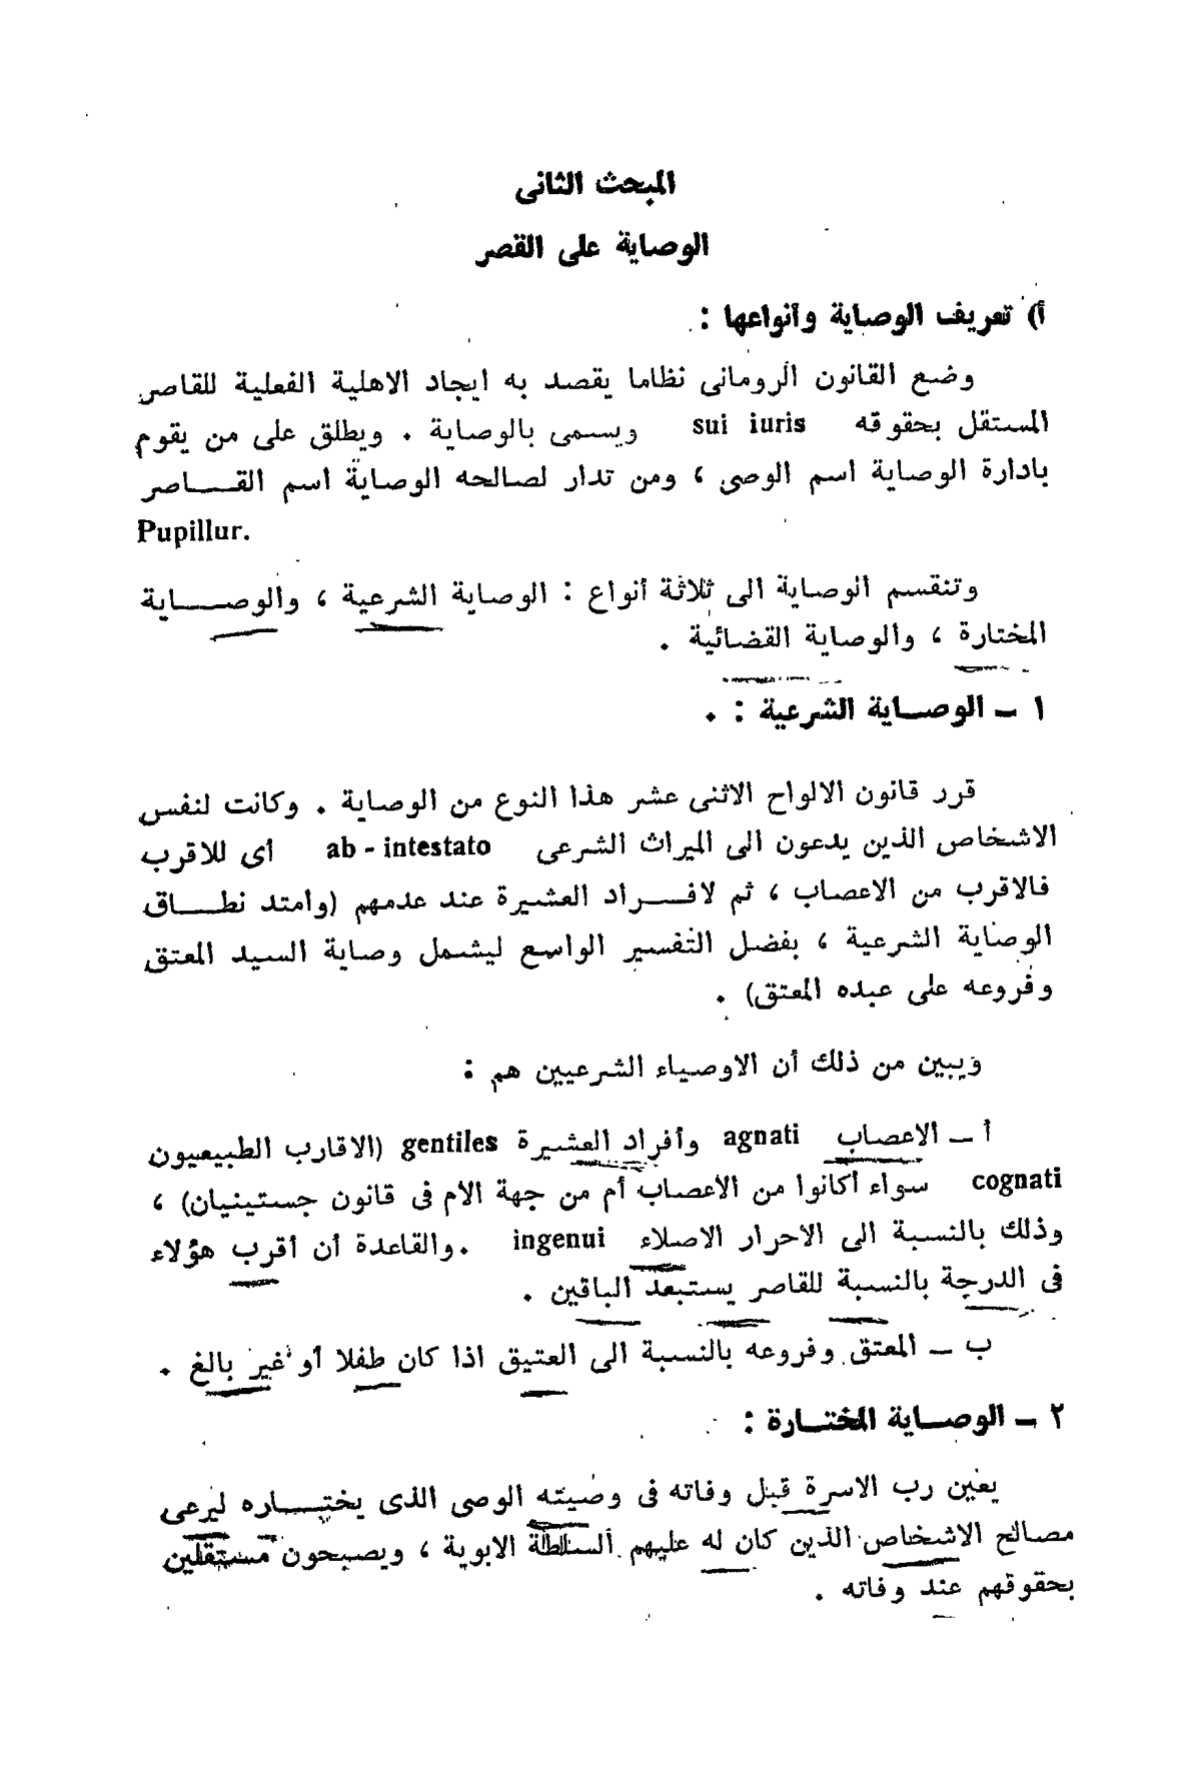 المبحث الثانى
الوصاية على القصر
أ) تعريف الوصاية وأنواعها :
وضع القانون الرومانى نظاما يقصد به ايجاد الاهلية الفعلية للقاصر
المستقل بحقوقه sui iuris ويسمى بالوصاية . ويطلق على من يقوم
بادارة الوصاية اسم الوصى ، ومن تدار لصالحه الوصاية اسم القـــاصر
Pupillur.
وتنقسم الوصاية الى ثلاثة أنواع : الوصاية الشرعية ، والوصـــاية
المختارة ، والوصاية القضائية .
١ ــ الوصــاية الشرعية : .
قرر قانون الالواح الاثنى عشر هذا النوع من الوصاية . وكانت لنفس
الاشخاص الذين يدعون الى الميراث الشرعى ab - intestato أى للاقرب
فالاقرب من الاعصاب ، ثم لافـــراد العشيرة عند عدمهم (وامتد نطــاق
الوصاية الشرعية ، بفضل التفسير الواسع ليشمل وصاية السيد المعتق
وفروعه على عبده المعتق) .
ويبين من ذلك أن الاوصياء الشرعيين هم :
أ ــ الاعصاب agnati وأفراد العشيرة gentiles (الاقارب الطبيعيون
cognati سواء أكانوا من الاعصاب أم من جهة الام فى قانون جستينيان) ،
وذلك بالنسبة الى الاحرار الاصلاء ingenui .والقاعدة أن أقرب هؤلاء
فى الدرجة بالنسبة للقاصر يستبعد الباقين .
ب ــ المعتق وفروعه بالنسبة الى العتيق اذا كان طفلا أو غير بالغ .
٢ ــ الوصــاية المختــارة :
يعين رب الاسرة قبل وفاته فى وصيته الوصى الذى يختـــاره ليرعى
مصالح الاشخاص الذين كان له عليهم السلطة الابوية ، ويصبحون مستقلين
بحقوقهم عند وفاته .